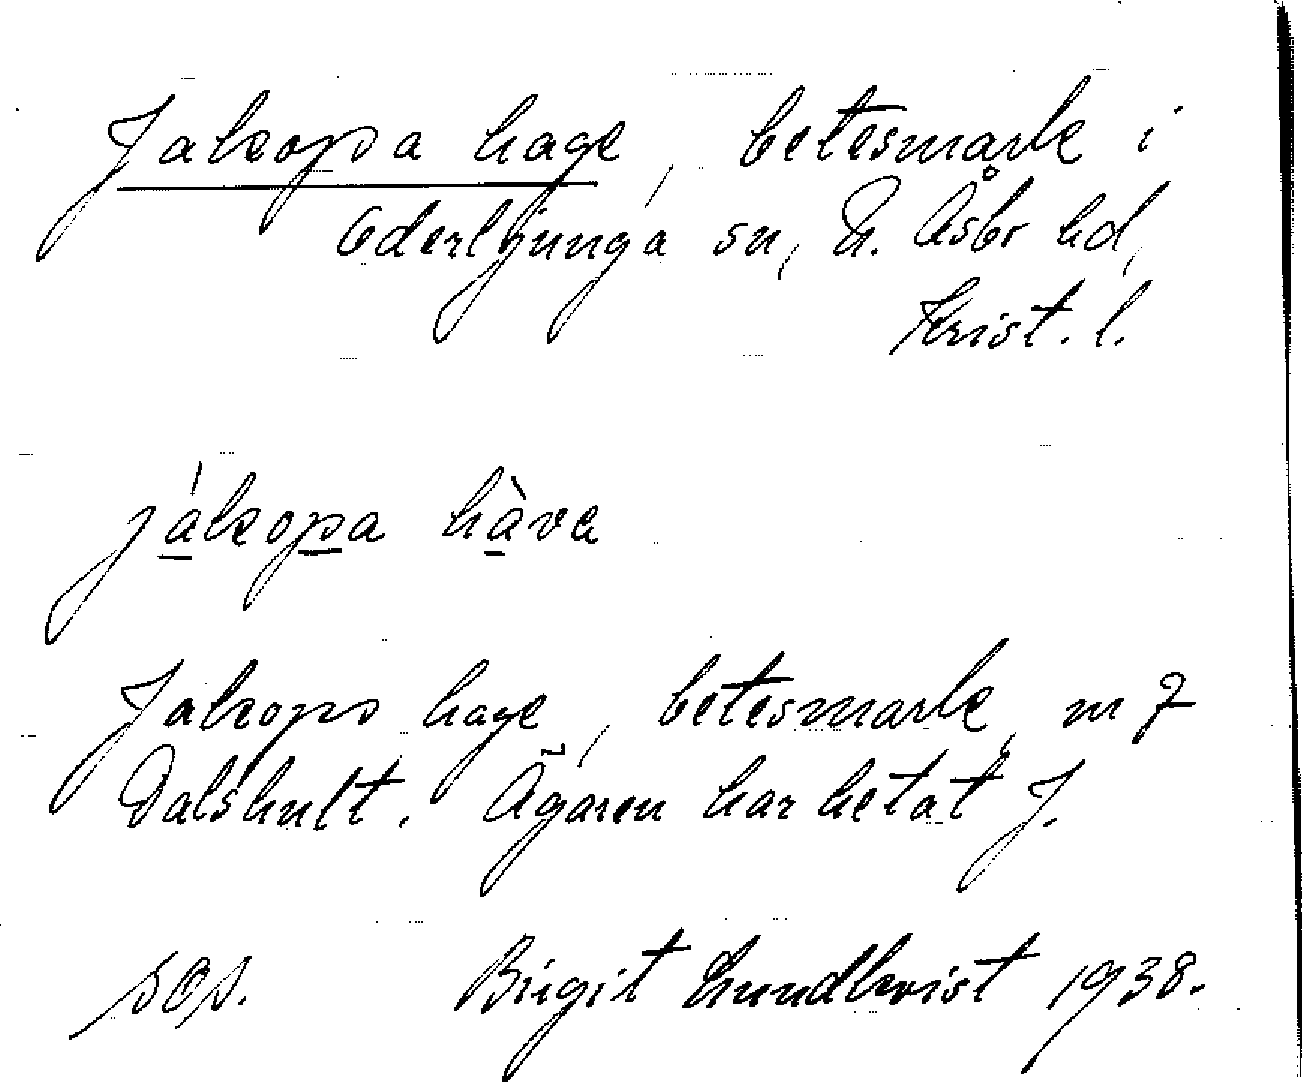 Jakopa hage, betesmark i
Ederljunga sn, N. Åsbo hd,
Krist. l.
jákopa hàva
Jakops hage, betesmark, nr 7
Dalshult. Ägaren har hetat J.
sos. Birgit Lundkvist 1938.